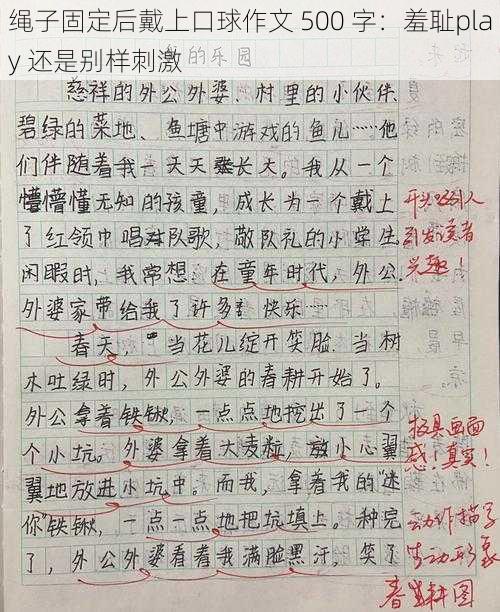 绳子固定后戴上口球作文 500 字：羞耻pla
y 还是别样刺激
的乐园
慈祥的外公外婆、村里的小伙伴、
碧绿的菜地、鱼塘中游戏的鱼儿……他
们伴随着我一天天长大。我从一个
懵懵懂无知的孩童，成长为一个戴上
了红领巾唱队歌，敬队礼的小学生。
闲暇时，我常想，在童年时代，外公
外婆家带给我了许多快乐……
开头吸引人
引发读者
兴趣！
春天，"当花儿绽开笑脸，当树
木吐绿时，外公外婆的春耕开始了。
外公拿着铁锹，一点点地挖出了一个
个小坑。外婆拿着大麦粒，放小心翼
翼地放进小坑中。而我，拿着我的"迷
你"铁锹，一点一点地把坑填上。种完
了，外公外婆看着我满脸黑汗，笑了
极具画面
感！真实！
动作描写
生动形象
春耕图